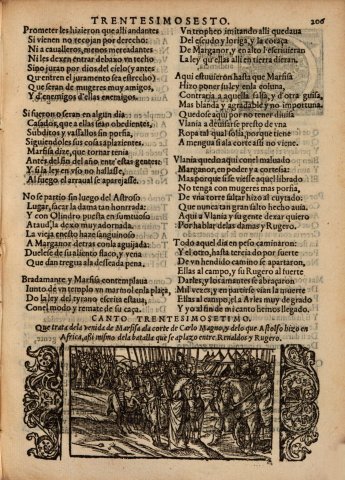 TRENTESIMOSESTO. 206
Prometer les hizieron que alli andantes
Si vienen no recojan por derecho:
Ni a caualleros, menos mercadantes
Ni les dexen entrar debaxo vn techo
Sino juran por dios del cielo (y antes
Que entren el juramento sea estrecho)
Que seran de mugeres muy amigos,
Y d'enemigos d'ellas enemigos.
Si fueron o seran en algun dia
Casados, que a ellas sean obedientes,
Subditos y vassallos sin porfia,
Siguiendoles sus cosas aplazientes.
Marfisa dize, que tornar tenia
Antes del fin del año entr'estas gentes:
Y si la ley en vso no hallasse,
Al fuego el arraual se aparejasse.
No se partio sin luego del
Lugar, sacar la dama tan honrrada:
Y con Olindro puesta en sumtuoso
Ataud, la dexo muy adornada.
La vieja en esto haze sanguinoso
A Marganor detras con la aguijada:
Duelese de su aliento flaco, y vena
Que dan tregua ala desseada pena.
Bradamante y Marfisa contemplaua
Junto de vn templo vn marmol en la plaça,
Do la ley del tyrano escrita estaua,
Con el modo y remate de su caça.
Vn tropheo imitando alli quedaua
Del escudo y loriga, y la coraça
De Marganor, y en alto l'escriuieran
La ley qu'ellas alli en tierra dieran.
Aqui estuuieron hasta que Marfisa
Hizo poner su ley en la coluna,
Contraria, a aquella falsa, y d'otra guisa,
Mas blanda y agradable y no importuna.
Quedose aqui por no tener diuisa
Vlania a desuiarse presto de vna
Ropa tal qual solia, porque tiene
A mengua si ala corte assi no viene.
Vlania quedo aqui con el maluado
Marganor, en poder y a cortesia:
Mas porque si se viesse aquel librado
No tenga con mugeres mas porfia,
De vna torre saltar hizo al cuytado:
Que nunca dieron tan gran salto hecho auia.
Aqui a Vlania y su gente dexar quiero
Por hablar destas damas y Rugero.
Todo aquel dia en peso caminaron:
Y el otro, hasta tercia do por fuerte
De vn hendido camino se apartaron,
Ellas al campo, y su Rugero al fuerte
Darles, y los amantes se abraçaron
Mil vezes, y en partirse vian la muerte
Ellas van al campo, el a Arles muy de grado
Y yo al fin de mi canto hemos llegado.
CANTO TRENTESIMOSETIMO.
Que trata dela venida de Marfisa ala corte de Carlo Magno, y delo que Astolfo hizo en
Africa, assi mismo dela batalla que se aplazo entre Renaldos y Rugero.